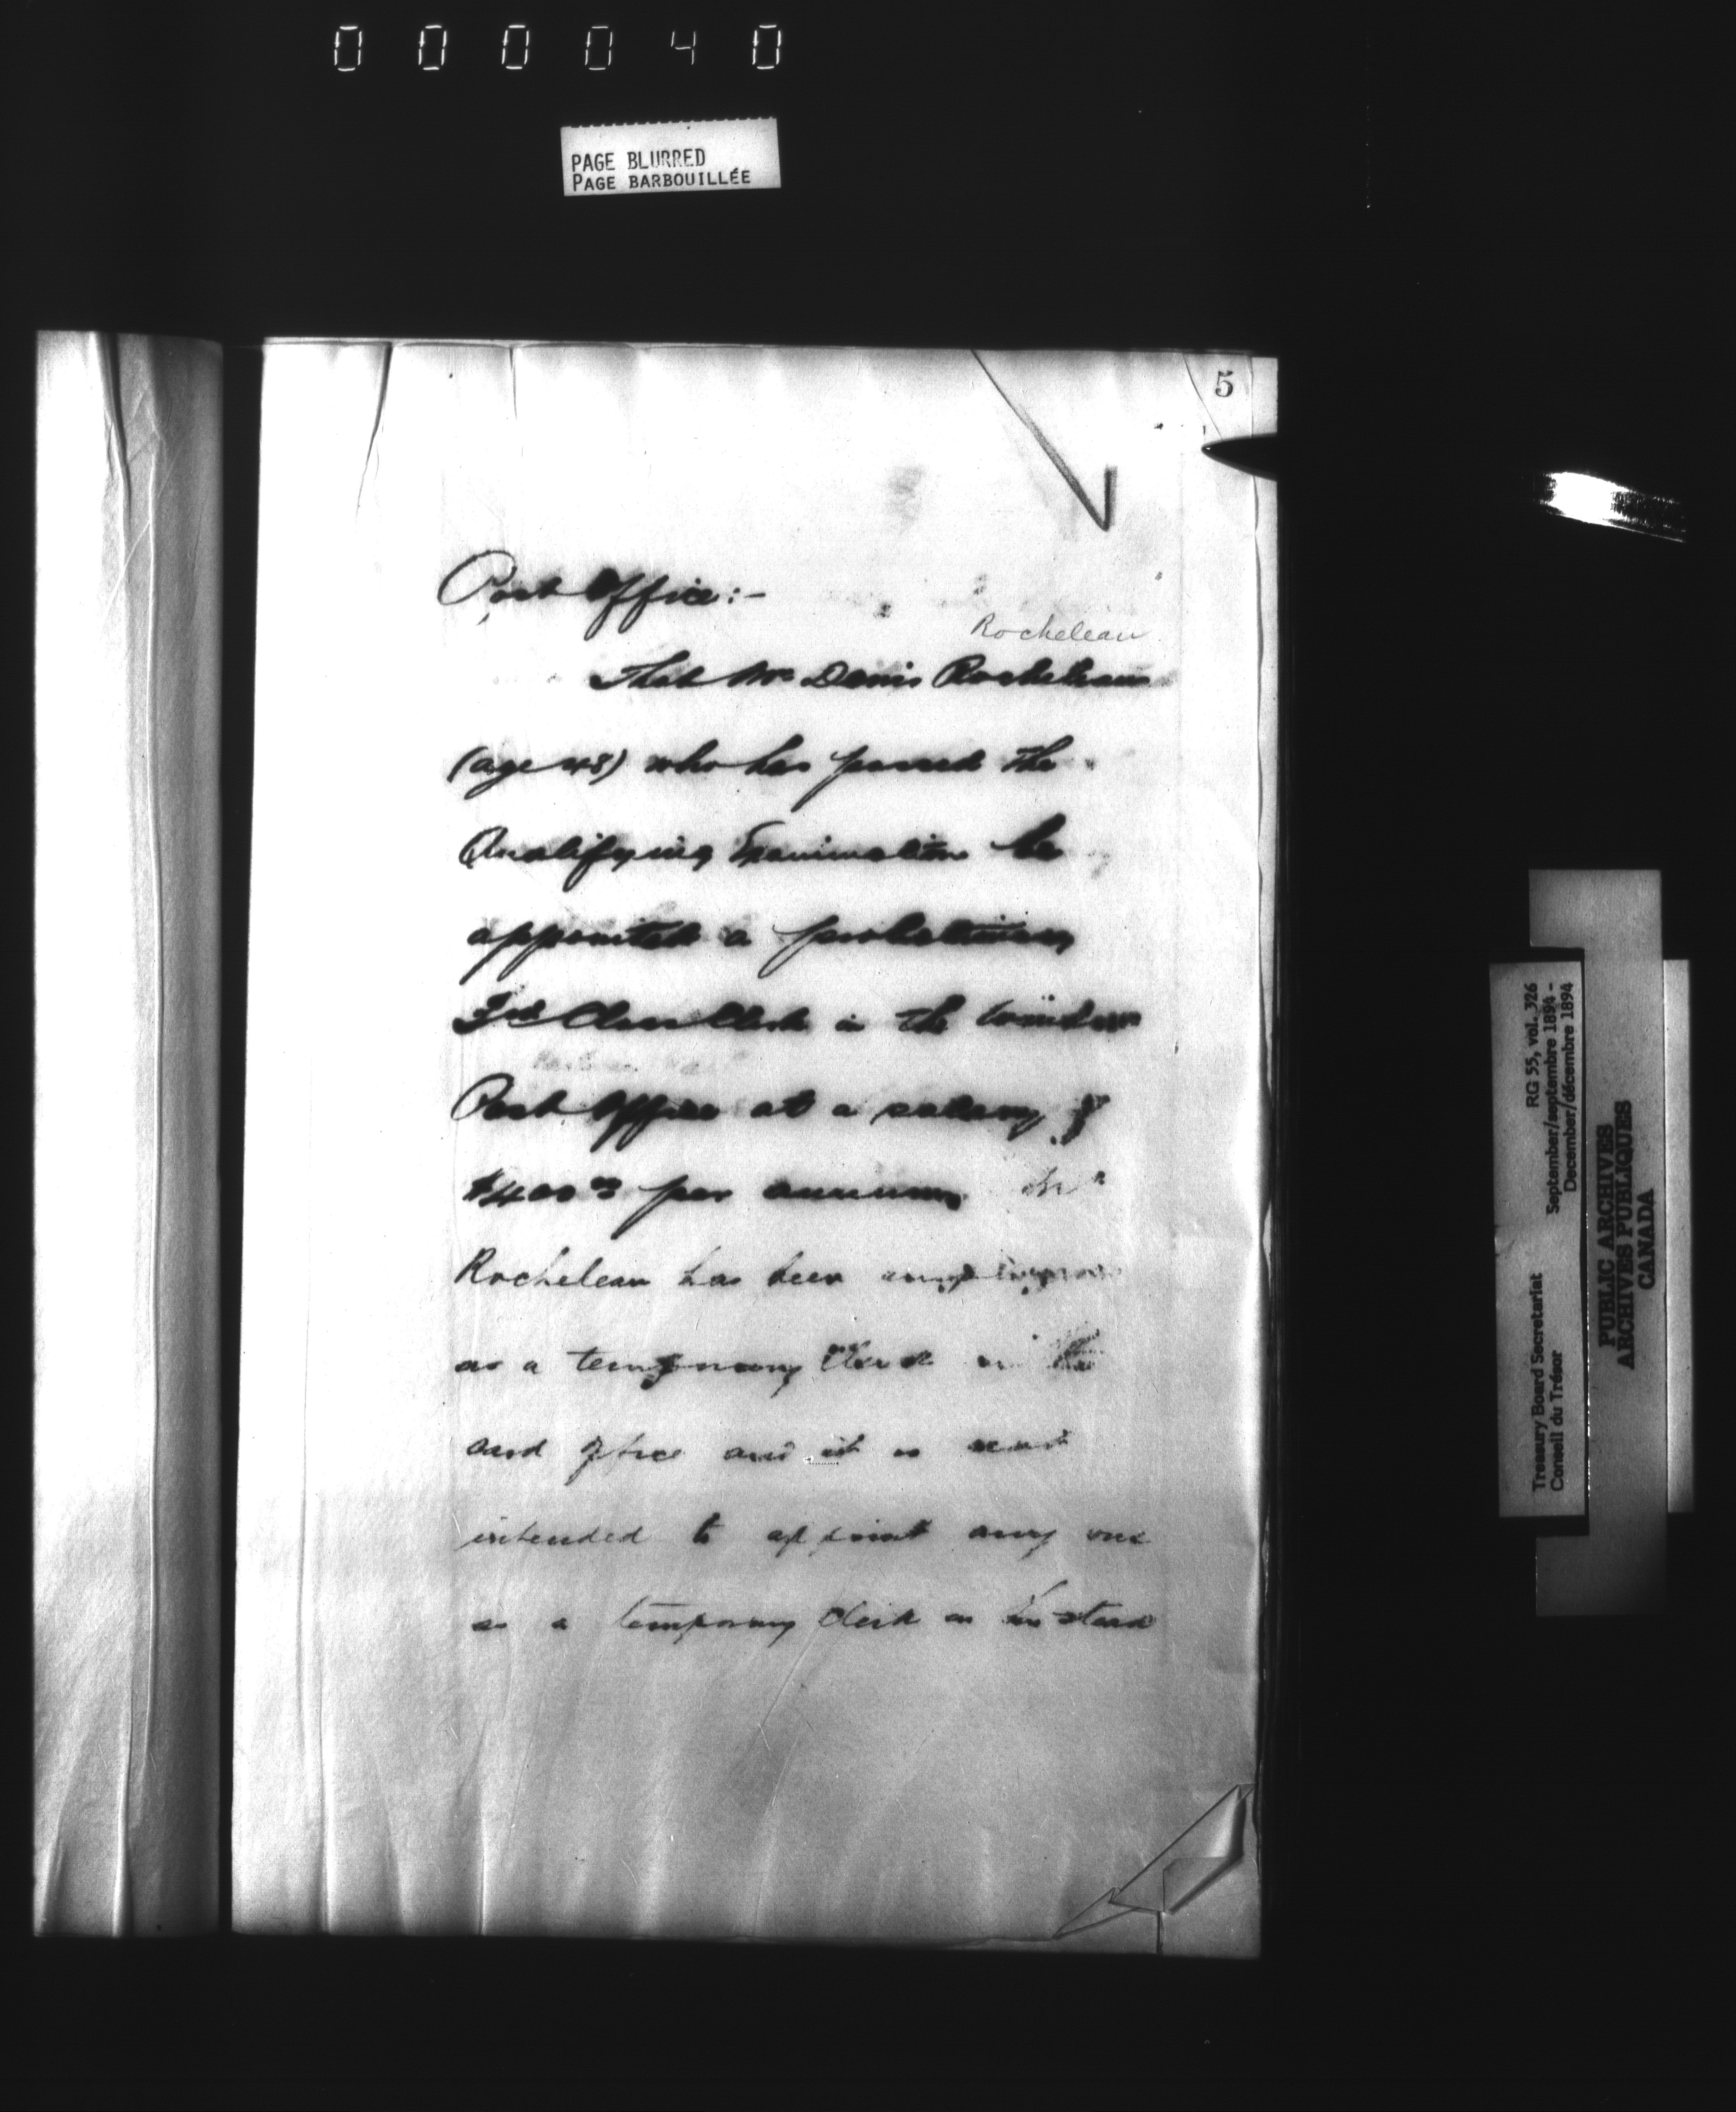 000040
PAGE BLURRED
PAGE BARBOUILLÉE
5
Post Office:-
Rocheleau
That Mr Denis Rocheleau
(age 48) who has passed the
Qualifying Examination be
appointed a probationary
3rd Class Clerk in the Windsor
Post Office at a salary of
$400 00 per annum. Mr
Rocheleau has been employed
as a temporary Clerk in the
said office and it is not
intended to appoint any one
as a temporary clerk in his stead
RG 55, vol. 326
September/septembre 1894 -
December/décembre 1894
Treasury Board Secretariat
Conseil du Trésor
PUBLIC ARCHIVES
ARCHIVES PUBLIQUES
CANADA